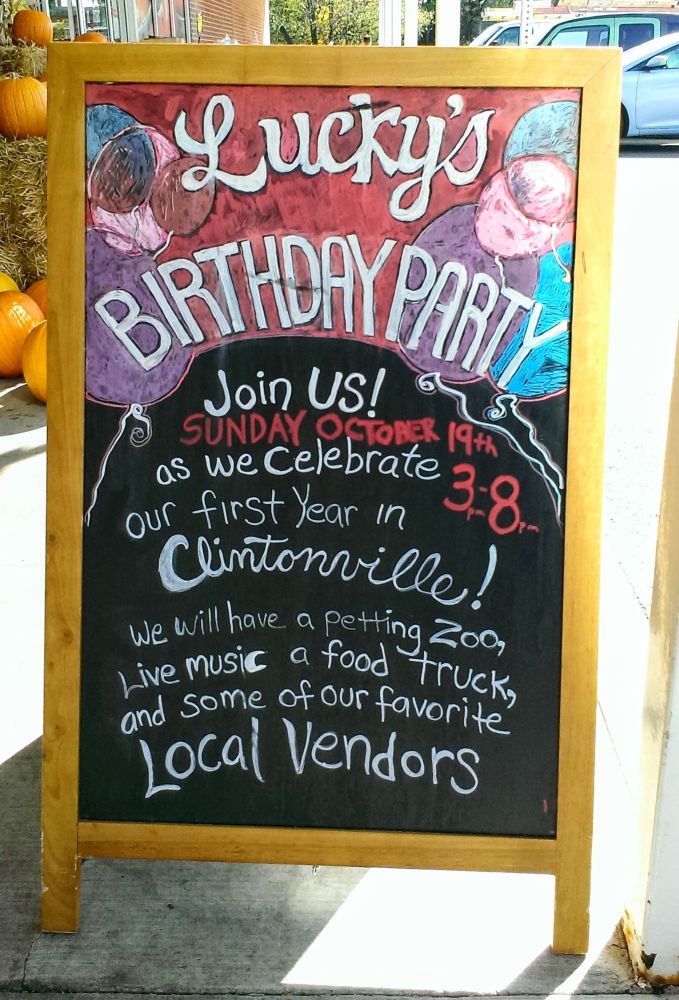 Lucky's
BIRTHDAY PARTY
Join US!
SUNDAY OCTOBER 19th
as we celebrate 3pm-8pm
our first Year in
Clintonville!
We will have a petting Zoo,
Live music a food truck,
and some of our favorite
Local Vendors